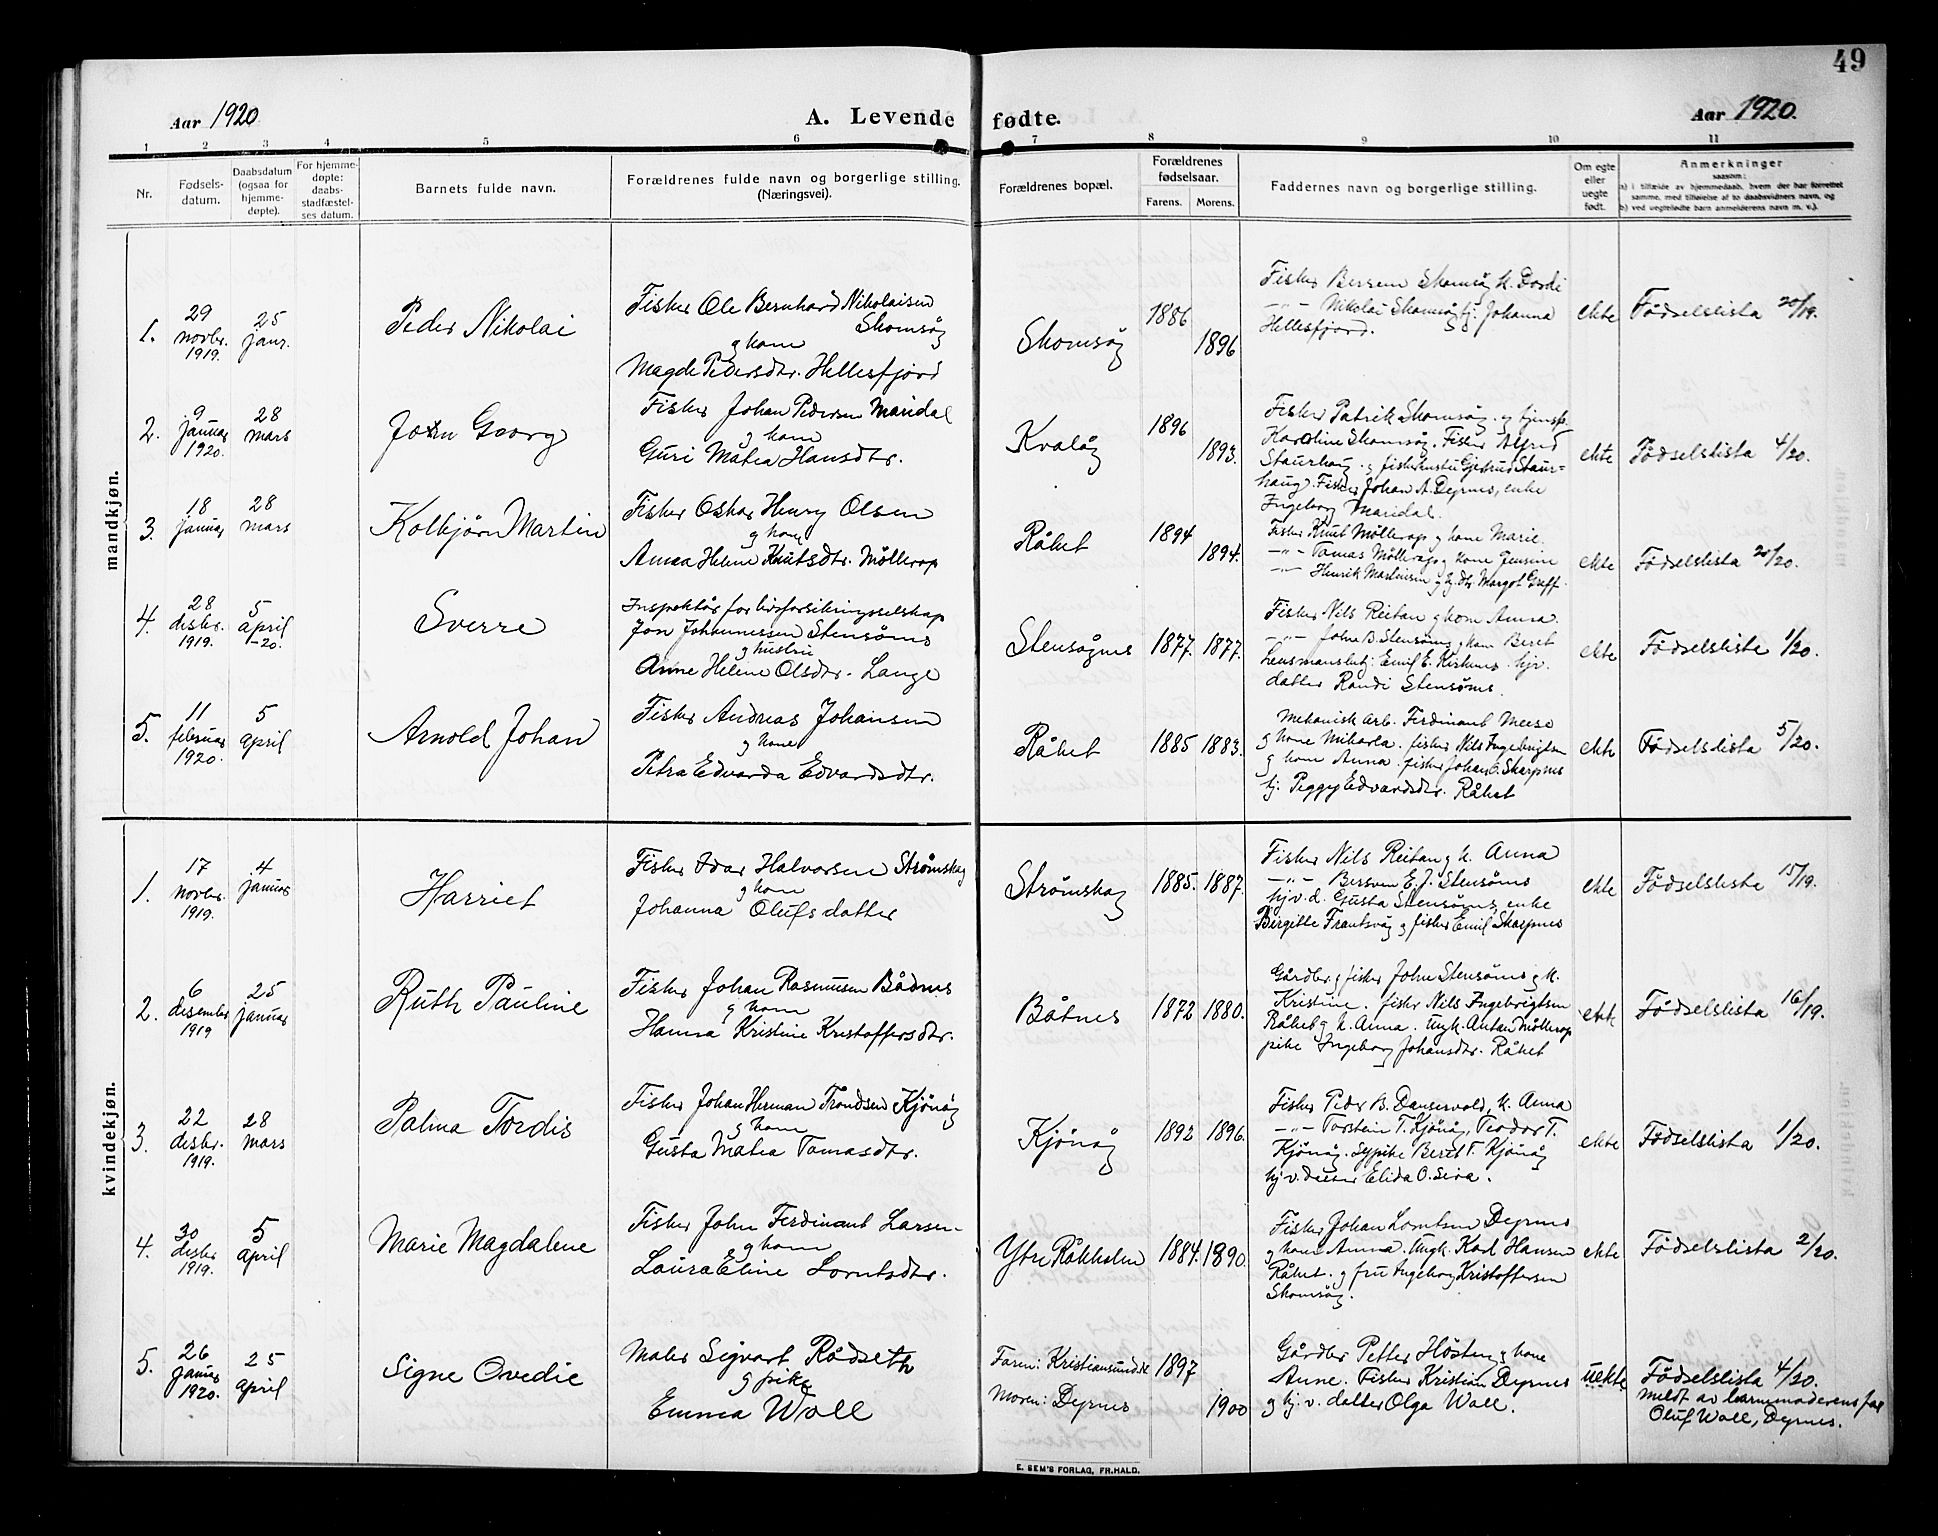 49
Aar 1920
A. Levende fødte.
Aar 1920.
1 2 3 4 5 6 7 8 9 10 11
Nr.
Fødsels-
datum.
Daabsdatum
(ogsaa for
hjemme-
døpte).
For hjemme-
døpte:
daabs-
stadfæstel-
ses datum.
Barnets fulde navn.
Forældrenes fulde navn og borgerlige stilling.
(Næringsvei).
Forældrenes bopæl.
Forældrenes
fødselsaar.
Farens. Morens.
Faddernes navn og borgerlige stilling.
Om egte
eller
uegte
født.
Anmerkninger
saasom:
a) i tilfælde av hjemmedaab, hvem der har forrettet
samme, med tilføielse af to daabsvidners navn, og
b) ved uegtefødte barn anmelderens navn m. v.).
mandkjøn.
1.
29
novbr.
1919.
25
janr.
Peder Nikolai
Fisker Ole Bernhard Nikolaisen
Skomsøg
g kone
Magde Pedersdtr. Hellesfjord
Skomsåg
1886
1896
Fisker Bersem Skomsåg k. Dordi
-"- Nikolai Skomsåg hj. Johanna
Hellesfjord.
ekte
Fødselslista 20/19.
2.
9
januar
1920.
28
mars
John Georg
Fisker Johan Pedersen Maridal
g kone
Guri Matea Hansdtr.
Kvalåg
1896
1893.
Fisker Patrik Skomsåg. og tjensp.
Karoline Skomsåg. Fisker Alfred
Staurhaug. g fiskerhustru Gjertrud Staur-
haug. Fisker Johan A. Dyrnes, enke
Ingeborg Maridal.
ekte
Fødselslista 4/20.
3.
18
januar
28
mars
Kolbjørn Martin
Fisker Oskar Henry Olsen
g kone
Anna Helene Knutsdtr. Møllerop
Råket
1894
1894.
Fisker Knut Møllerop g kone Marie.
-"- Tomas Møllerop g kone Jensine
-"- Henrik Martinsen g hj. dtr. Margot Greff.
ekte
Fødselslista 20/20.
4.
28
desbr.
1919.
5
april
-20.
Sverre
Inspektør for livsforsikringsselskap
Jon Johannessen Stensønes
g hustru
Anne Helene Olsdtr. Lange
Stensøgnes
1877. 1877.
Fisker Nils Reitan g kone Anna.
-"- John B. Stensønes g kone Beret
Lensmansbetj. Emil E. Kirknes. hjv.
datter Randi Stensønes.
ekte
Fødselsliste 1/20.
5.
11
februar
1920.
5
april
Arnold Johan
Fisker Andreas Johansen
g kone
Petra Edvarda Edvardsdtr.
Råket
1885 1883.
Mekanisk arb. Ferdinant Meese
g kone Mikarla. fisker Nils Ingebrigtsen
g kone Anna. fisker Johan O. Skarpnes
hj. Peggy Edvardsdtr. Råket
ekte
Fødselslista 5/20.
kvindekjøn.
1.
17
novbr.
1919.
4
januar
Harriet
Fisker Idar Halvorsen Strømskag
g kone
Johanna Olufsdatter
Strømskag
1885. 1887.
Fisker Nils Reitan g k. Anna
-"- Bersven E. J. Stensønes
hjv. d. Gusta Stensønes, enke
Birgitte Frantsvåg g fisker Emil Skarpnes
ekte
Fødselsliste 15/19.
2.
6
desember
1919
25
januar
Ruth Pauline
Fisker Johan Rasmussen Bådnes
g kone
Hanna Kristine Kristoffersdtr.
Båtnes
1872 1880.
Gårdbr g fisker John Stensønes g k.
Kristine. fisker Nils Ingebrigtsen
Råket g k. Anna. Ungk. Antan Møllerop
pike Ingeborg Johansdtr. Råket
ekte
Fødselslista 16/19.
3.
22
desbr.
1919.
28
mars
Palma Tordis
Fisker Johan Herman Trondsen Kjönåg
g kone
Gusta Matea Tomasdtr.
Kjönåg
1892 1896.
Fisker Peder B. Dansevold, k. Anna
-"- Torstein T. Kjönåg, Teodor T.
Kjönåg. Sypike Beret T. Kjönåg
hj. v. datter Elida O. Seva.
ekte
Fødselslista 1/20.
4.
30
desbr
1919.
5
april
Marie Magdalene
Fisker John Ferdinant Larsen-
g kone
Laura Eline Lorntsdtr.
Ytre Råkholm
1884. 1890.
Fisker Johan Lorntsen Dyrnes
g kone Anna. Ungk. Karl Hansen
Råket. g fru Ingeborg Kristoffersen
Skomsåg.
ekte
Fødselslista 2/20.
5.
26
januar
1920.
25
april
Signe Ovedie
Maler Sigvart Rådseth
g pike
Emma Woll
Faren: Kristiansund.
Moren: Dyrnes
1897
1900
Gårdbr Petter Høsten g kone
Anne. Fisker Kristian Dyrnes
g hj. v. datter Olga Woll.
uekte
Fødselslista 4/20.
meldt av barnemoderens far
Oluf Woll, Dyrnes.
E. SEM'S FORLAG, FR.HALD.